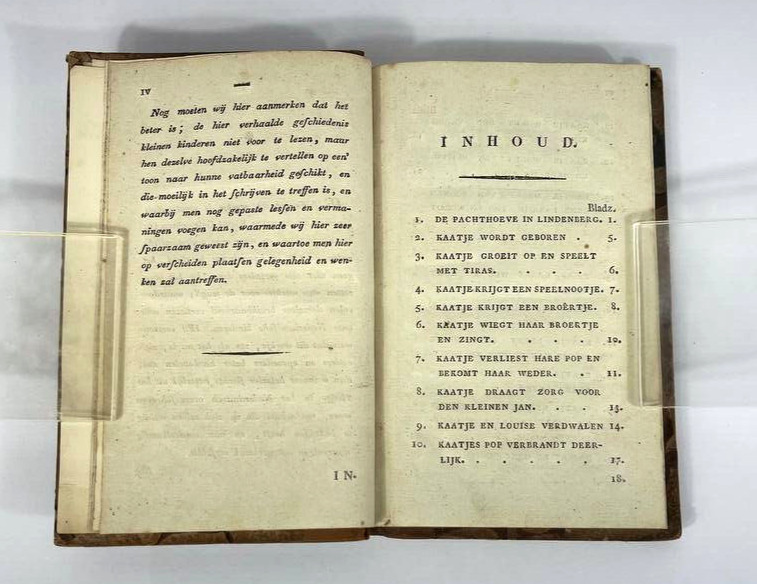 IV
Nog moeten wij hier aanmerken dat het
beter is; de hier verhaalde geſchiedenis
kleinen kinderen niet voor te lezen, maar
hen dezelve hoofdzakelijk te vertellen op een'
toon naar hunne vatbaarheid geſchikt, en
die moeilijk in het ſchrijven te treffen is, en
waarbij men nog gepaste lesſen en verma-
ningen voegen kan, waarmede wij hier zeer
ſpaarzaam geweest zijn, en waartoe men hier
op verſcheiden plaatſen gelegenheid en wen-
ken zal aantreffen.
IN-
INHOUD.
Bladz.
1. DE PACHTHOEVE IN LINDENBERG. 1.
2. KAATJE WORDT GEBOREN . 5.
3. KAATJE GROEIT OP EN SPEELT
MET TIRAS. . . . 6.
4. KAATJE KRIJGT EEN SPEELNOOTJE. 7.
5. KAATJE KRIJGT EEN BROÊRTJE. 8.
6. KAATJE WIEGT HAAR BROERTJE
EN ZINGT. . . . 10.
7. KAATJE VERLIEST HARE POP EN
BEKOMT HAAR WEDER. . . 11.
8. KAATJE DRAAGT ZORG VOOR
DEN KLEINEN JAN. . . 13.
9. KAATJE EN LOUISE VERDWALEN 14.
10. KAATJES POP VERBRANDT DEER-
LIJK. . . . . . 17.
18.